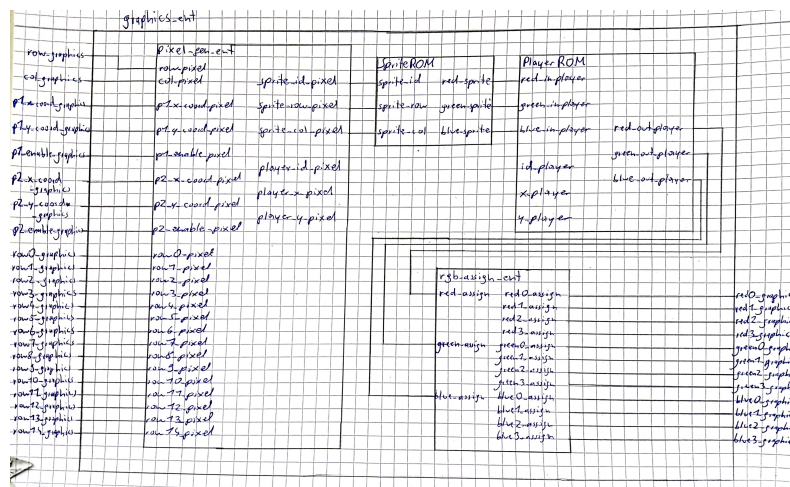 graphics_ent
row_graphics
col_graphics
p1_x_coord_graphics
p1_y_coord_graphics
p1_enable_graphics
p2_x_coord
_graphics
p2_y_coord
_graphics
p2_enable_graphics
row0_graphics
row1_graphics
row2_graphics
row3_graphics
row4_graphics
row5_graphics
row6_graphics
row7_graphics
row8_graphics
row9_graphics
row10_graphics
row11_graphics
row12_graphics
row13_graphics
row14_graphics
pixel_gen_ent
row_pixel
col_pixel
p1_x_coord_pixel
p1_y_coord_pixel
p1_enable_pixel
p2_x_coord_pixel
p2_y_coord_pixel
p2_enable_pixel
row0_pixel
row1_pixel
row2_pixel
row3_pixel
row4_pixel
row5_pixel
row6_pixel
row7_pixel
row8_pixel
row9_pixel
row10_pixel
row11_pixel
row12_pixel
row13_pixel
row14_pixel
sprite_id_pixel
sprite_row_pixel
sprite_col_pixel
player_id_pixel
player_x_pixel
player_y_pixel
SpriteROM
sprite_id red_sprite
sprite_row green_sprite
sprite_col blue_sprite
PlayerROM
red_in_player
green_in_player
blue_in_player
id_player
x_player
y_player
red_out_player
green_out_player
blue_out_player
rgb_assign_ent
red_assign
green_assign
blue_assign
red0_assign
red1_assign
red2_assign
red3_assign
green0_assign
green1_assign
green2_assign
green3_assign
blue0_assign
blue1_assign
blue2_assign
blue3_assign
red0_graphi
red1_graphi
red2_graphi
red3_graphic
green0_graph
green1_graph
green2_graph
green3_graph
blue0_graph
blue1_graph
blue2_graph
blue3_graphi